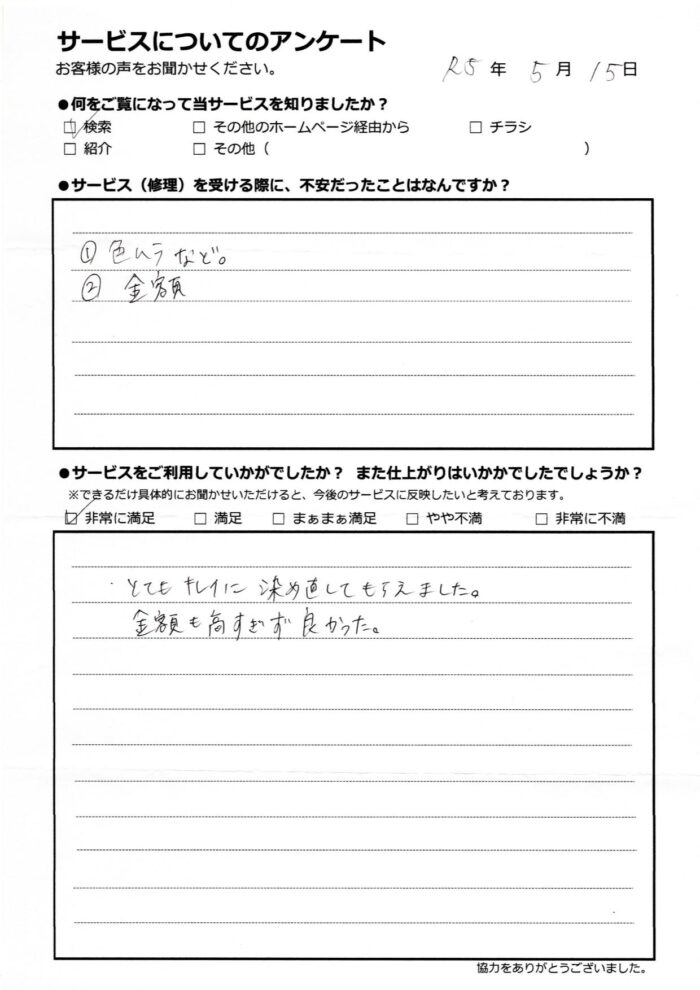 サービスについてのアンケート
お客様の声をお聞かせください。
R5 年 5 月 15 日
●何をご覧になって当サービスを知りましたか？
☑ 検索 □ その他のホームページ経由から □ チラシ
□ 紹介 □ その他（ ）
●サービス（修理）を受ける際に、不安だったことはなんですか？
① 色ムラなど。
② 金額
●サービスをご利用していかがでしたか？ また仕上がりはいかかでしたでしょうか？
※できるだけ具体的にお聞かせいただけると、今後のサービスに反映したいと考えております。
☑ 非常に満足 □ 満足 □ まぁまぁ満足 □ やや不満 □ 非常に不満
とてもキレイに染め直してもらえました。
金額も高すぎず良かった。
協力をありがとうございました。